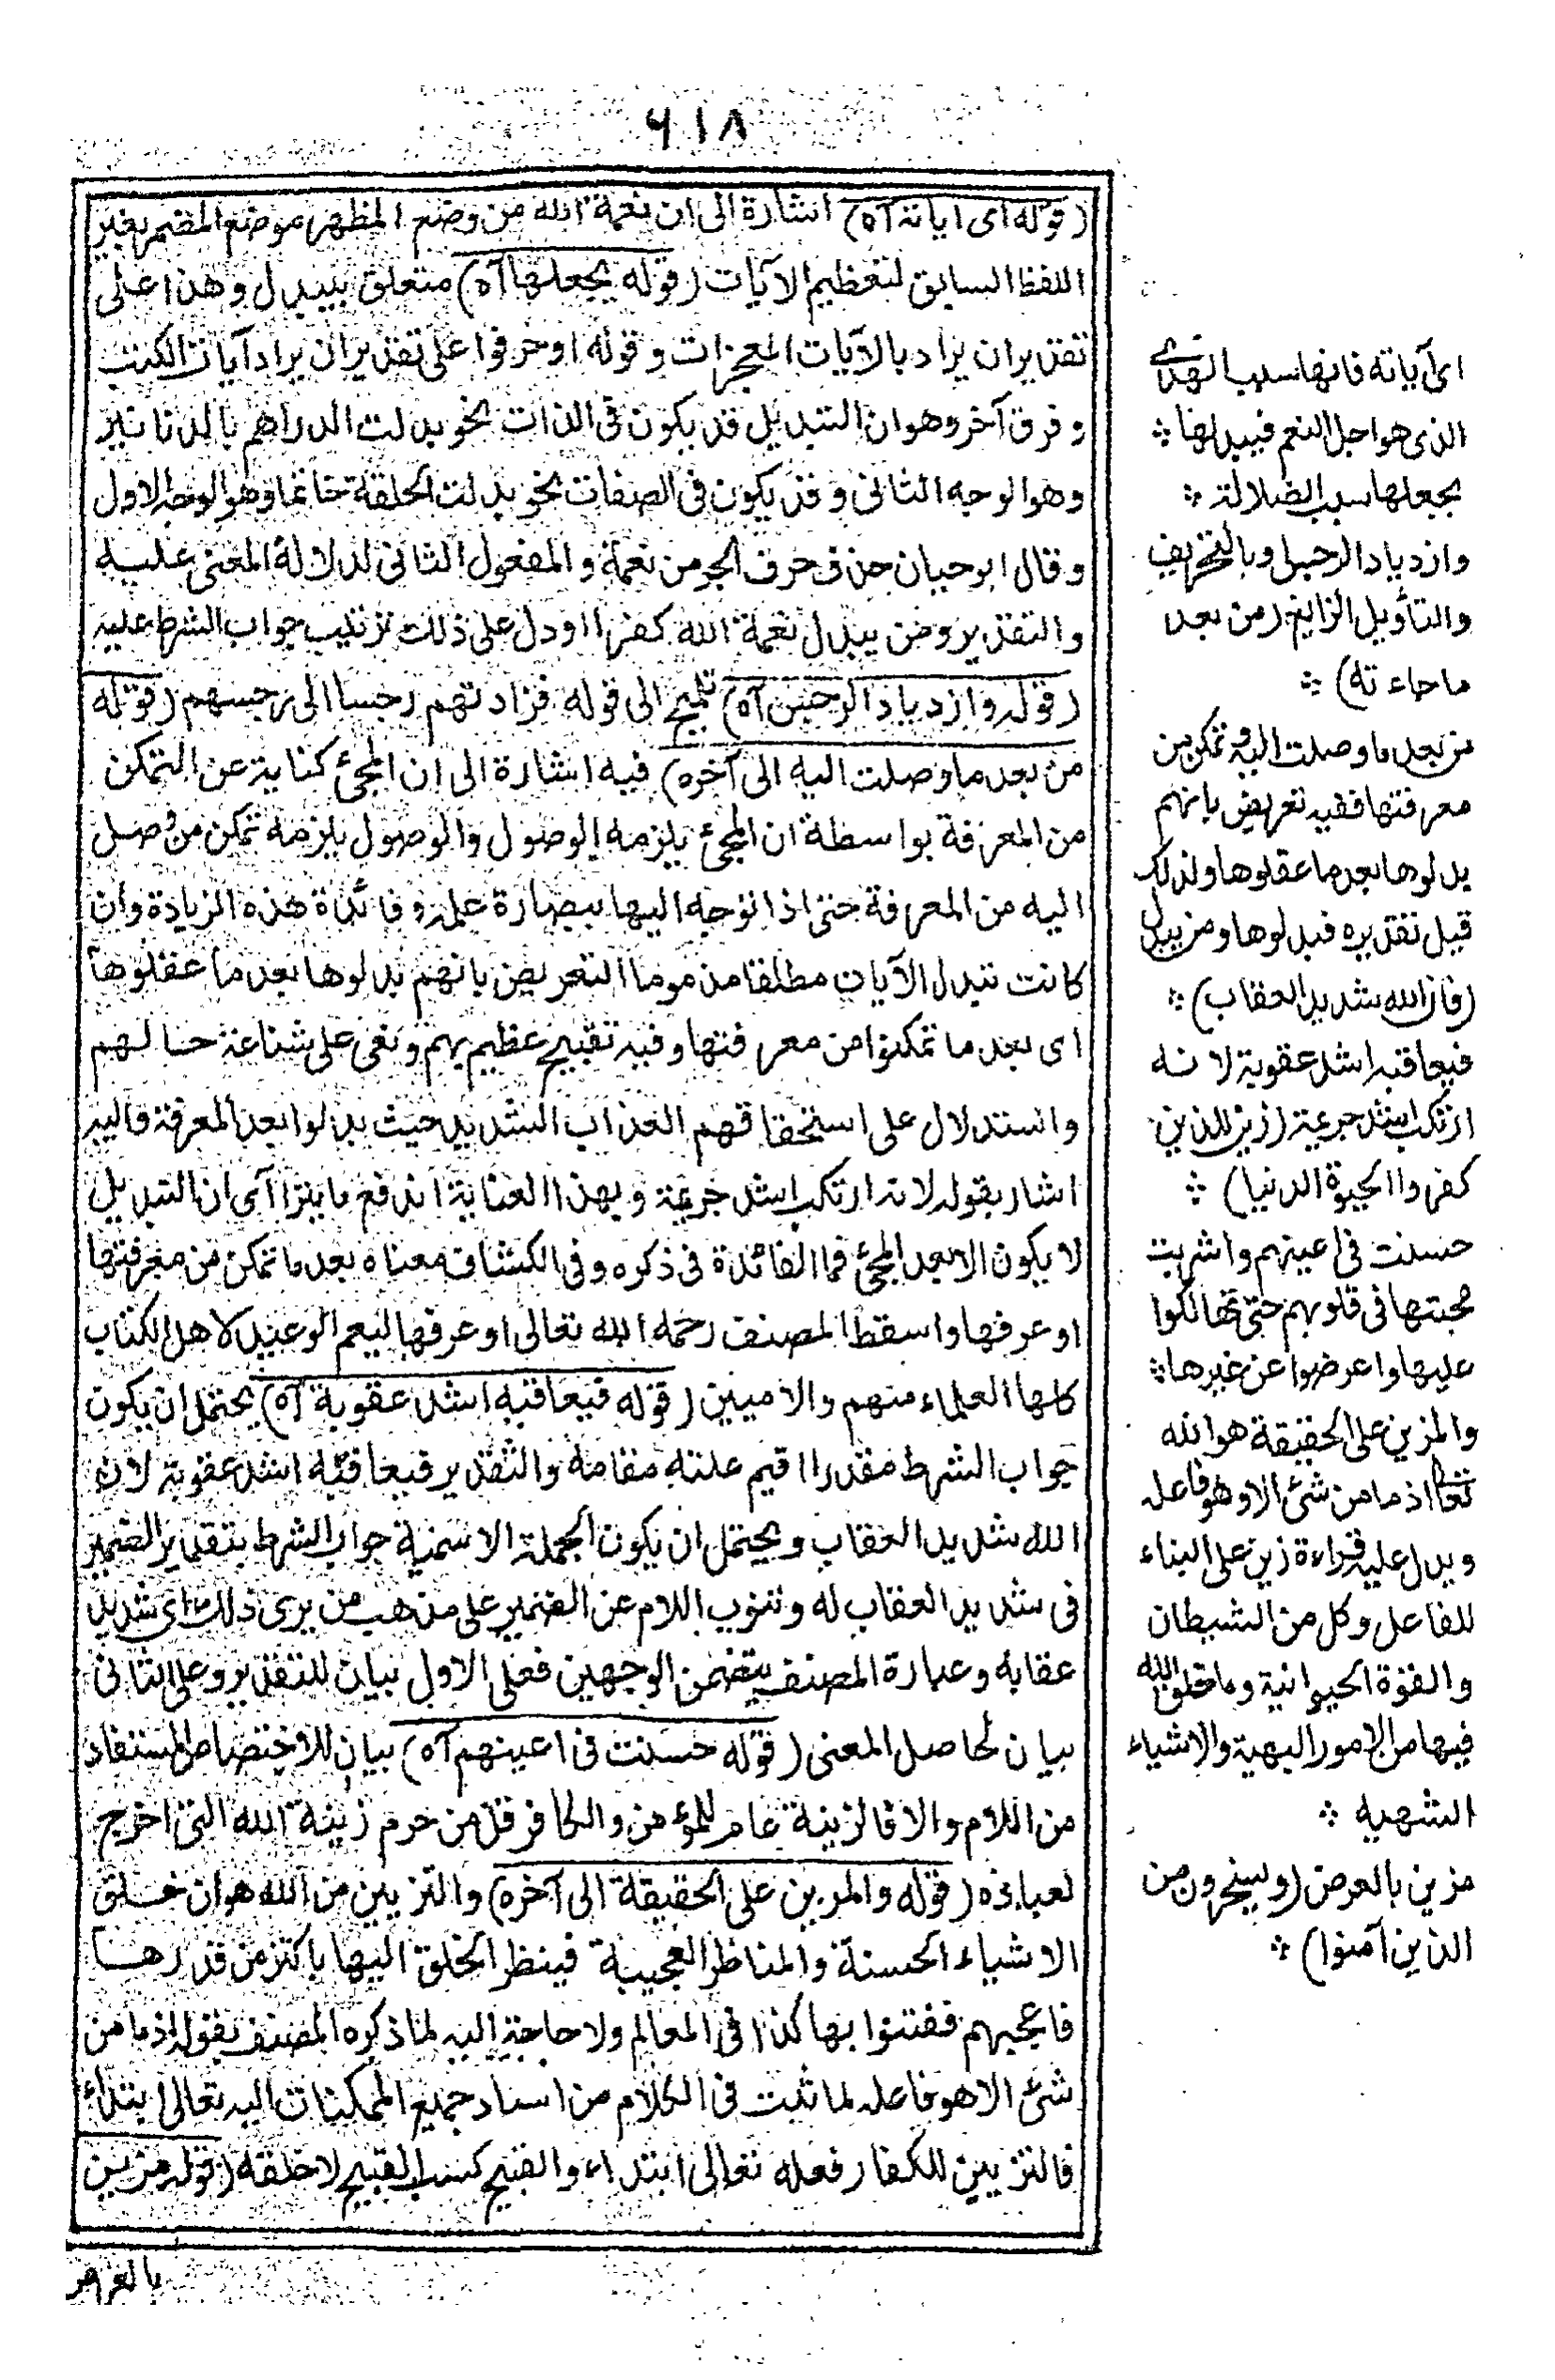 ٦١٨
(قوله اى اياته آه) اشارة الى ان نعمة الله من وضع المظهر موضع المضمر بغير
اللفظ السابق لتعظيم الآيات (قوله بجعلها آه) متعلق بيبدل وهذا على
تقدير ان يراد بالآيات المعجزات وقوله او حرفوا على تقدير ان يراد آيات الكتب
وفرق آخر وهو ان التبديل قد يكون فى الذات نحو بدلت الدراهم بالدنانير
وهو الوجه الثانى وقد يكون فى الصفات نحو بدلت الحلقة خاتما وهو الوجه الاول
وقال ابو حيان حذف حرف الجر من نعمة والمفعول الثانى لدلالة المعنى عليه
والتقدير ومن يبدل نعمة الله كفرا اودل على ذلك ترتيب جواب الشرط عليه
(قوله وازدياد الرجس آه) تلميح الى قوله فزادتهم رجسا الى رجسهم (قوله
من بعد ما وصلت اليه الى آخره) فيه اشارة الى ان المجئ كناية عن التمكن
من المعرفة بواسطة ان المجئ يلزمه الوصول والوصول يلزمه تمكن من وصل
اليه من المعرفة حتى اذا توجه اليها ببصارة علمه وفائدة هذه الزيادة وان
كانت تبدل الآيات مطلقا مذموما التعريض بانهم بدلوها بعد ما عقلوها
اى بعد ما تمكنوا من معرفتها وفيه تقبيح عظيم بهم ونعى على شناعة حالهم
واستدلال على استحقاقهم العذاب الشديد حيث بدلوا بعد المعرفة واليه
اشار بقوله لانه ارتكب اشد جريمة وبهذا العناية اندفع ما يترا آى ان التبديل
لا يكون الا بعد المجئ فما الفائدة فى ذكره وفى الكشاف معناه بعد ما تمكن من معرفتها
او عرفها واسقط المصنف رحمه الله تعالى او عرفها ليعم الوعيد لاهل الكتاب
كلها العلماء منهم والاميين (قوله فيعاقبه اشد عقوبة آه) يحتمل ان يكون
جواب الشرط مقدرا اقيم علته مقامه والتقدير فيعاقبه اشد عقوبة لان
الله شديد العقاب ويحتمل ان يكون الجملة الاسمية جواب الشرط بتقدير الضمير
فى شديد العقاب له وتنوب اللام عن الضمير على مذهب من يرى ذلك اى شديد
عقابه وعبارة المصنف يتضمن الوجهين فعلى الاول بيان للتقدير وعلى الثانى
بيان لحاصل المعنى (قوله حسنت فى اعينهم آه) بيان للاختصاص المستفاد
من اللام والا فالزينة عام للمؤمن والكافر قل من حرم زينة الله التى اخرج
لعباده (قوله والمزين على الحقيقة الى آخره) والتزيين من الله هو ان خلق
الاشياء الحسنة والمناظر العجيبة فينظر الخلق اليها باكثر من قدرها
فاعجبهم ففتنوا بها كذا فى المعالم ولا حاجة اليه لما ذكره المصنف بقوله اذ ما من
شئ الا هو فاعله لما ثبت فى الكلام من اسناد جميع الممكنات اليه تعالى ابتداء
فالتزيين للكفار فعله تعالى ابتداء والقبيح كسب القبيح لا خلقه (قوله مزين
بالعرض
اى آياته فانها سبب الهدى
الذى هو اجل النعم فيبدلها ؞
بجعلها سبب الضلالة ؞
وازدياد الرجس او بالتحريف
والتأويل الزائغ (من بعد
ما جاءته) ؞
من بعد ما وصلت اليه وتمكن من
معرفتها ففيه تعريض بانهم
بدلوها بعد ما عقلوها ولذلك
قيل تقديره فبدلوها ومن يبدل
(فان الله شديد العقاب) ؞
فيعاقبه اشد عقوبة لانه
ارتكب اشد جريمة (زين للذين
كفروا الحيوة الدنيا) ؞
حسنت فى اعينهم واشربت
محبتها فى قلوبهم حتى تهالكوا
عليها واعرضوا عن غيرها ؞
والمزين على الحقيقة هو الله
تعالى اذ ما من شئ الا وهو فاعله
ويدل عليه قراءة زين على البناء
للفاعل وكل من الشيطان
والقوة الحيوانية وما خلق الله
فيها من الامور البهية والاشياء
الشهية ؞
مزين بالعرض (ويسخرون من
الذين آمنوا) ؞